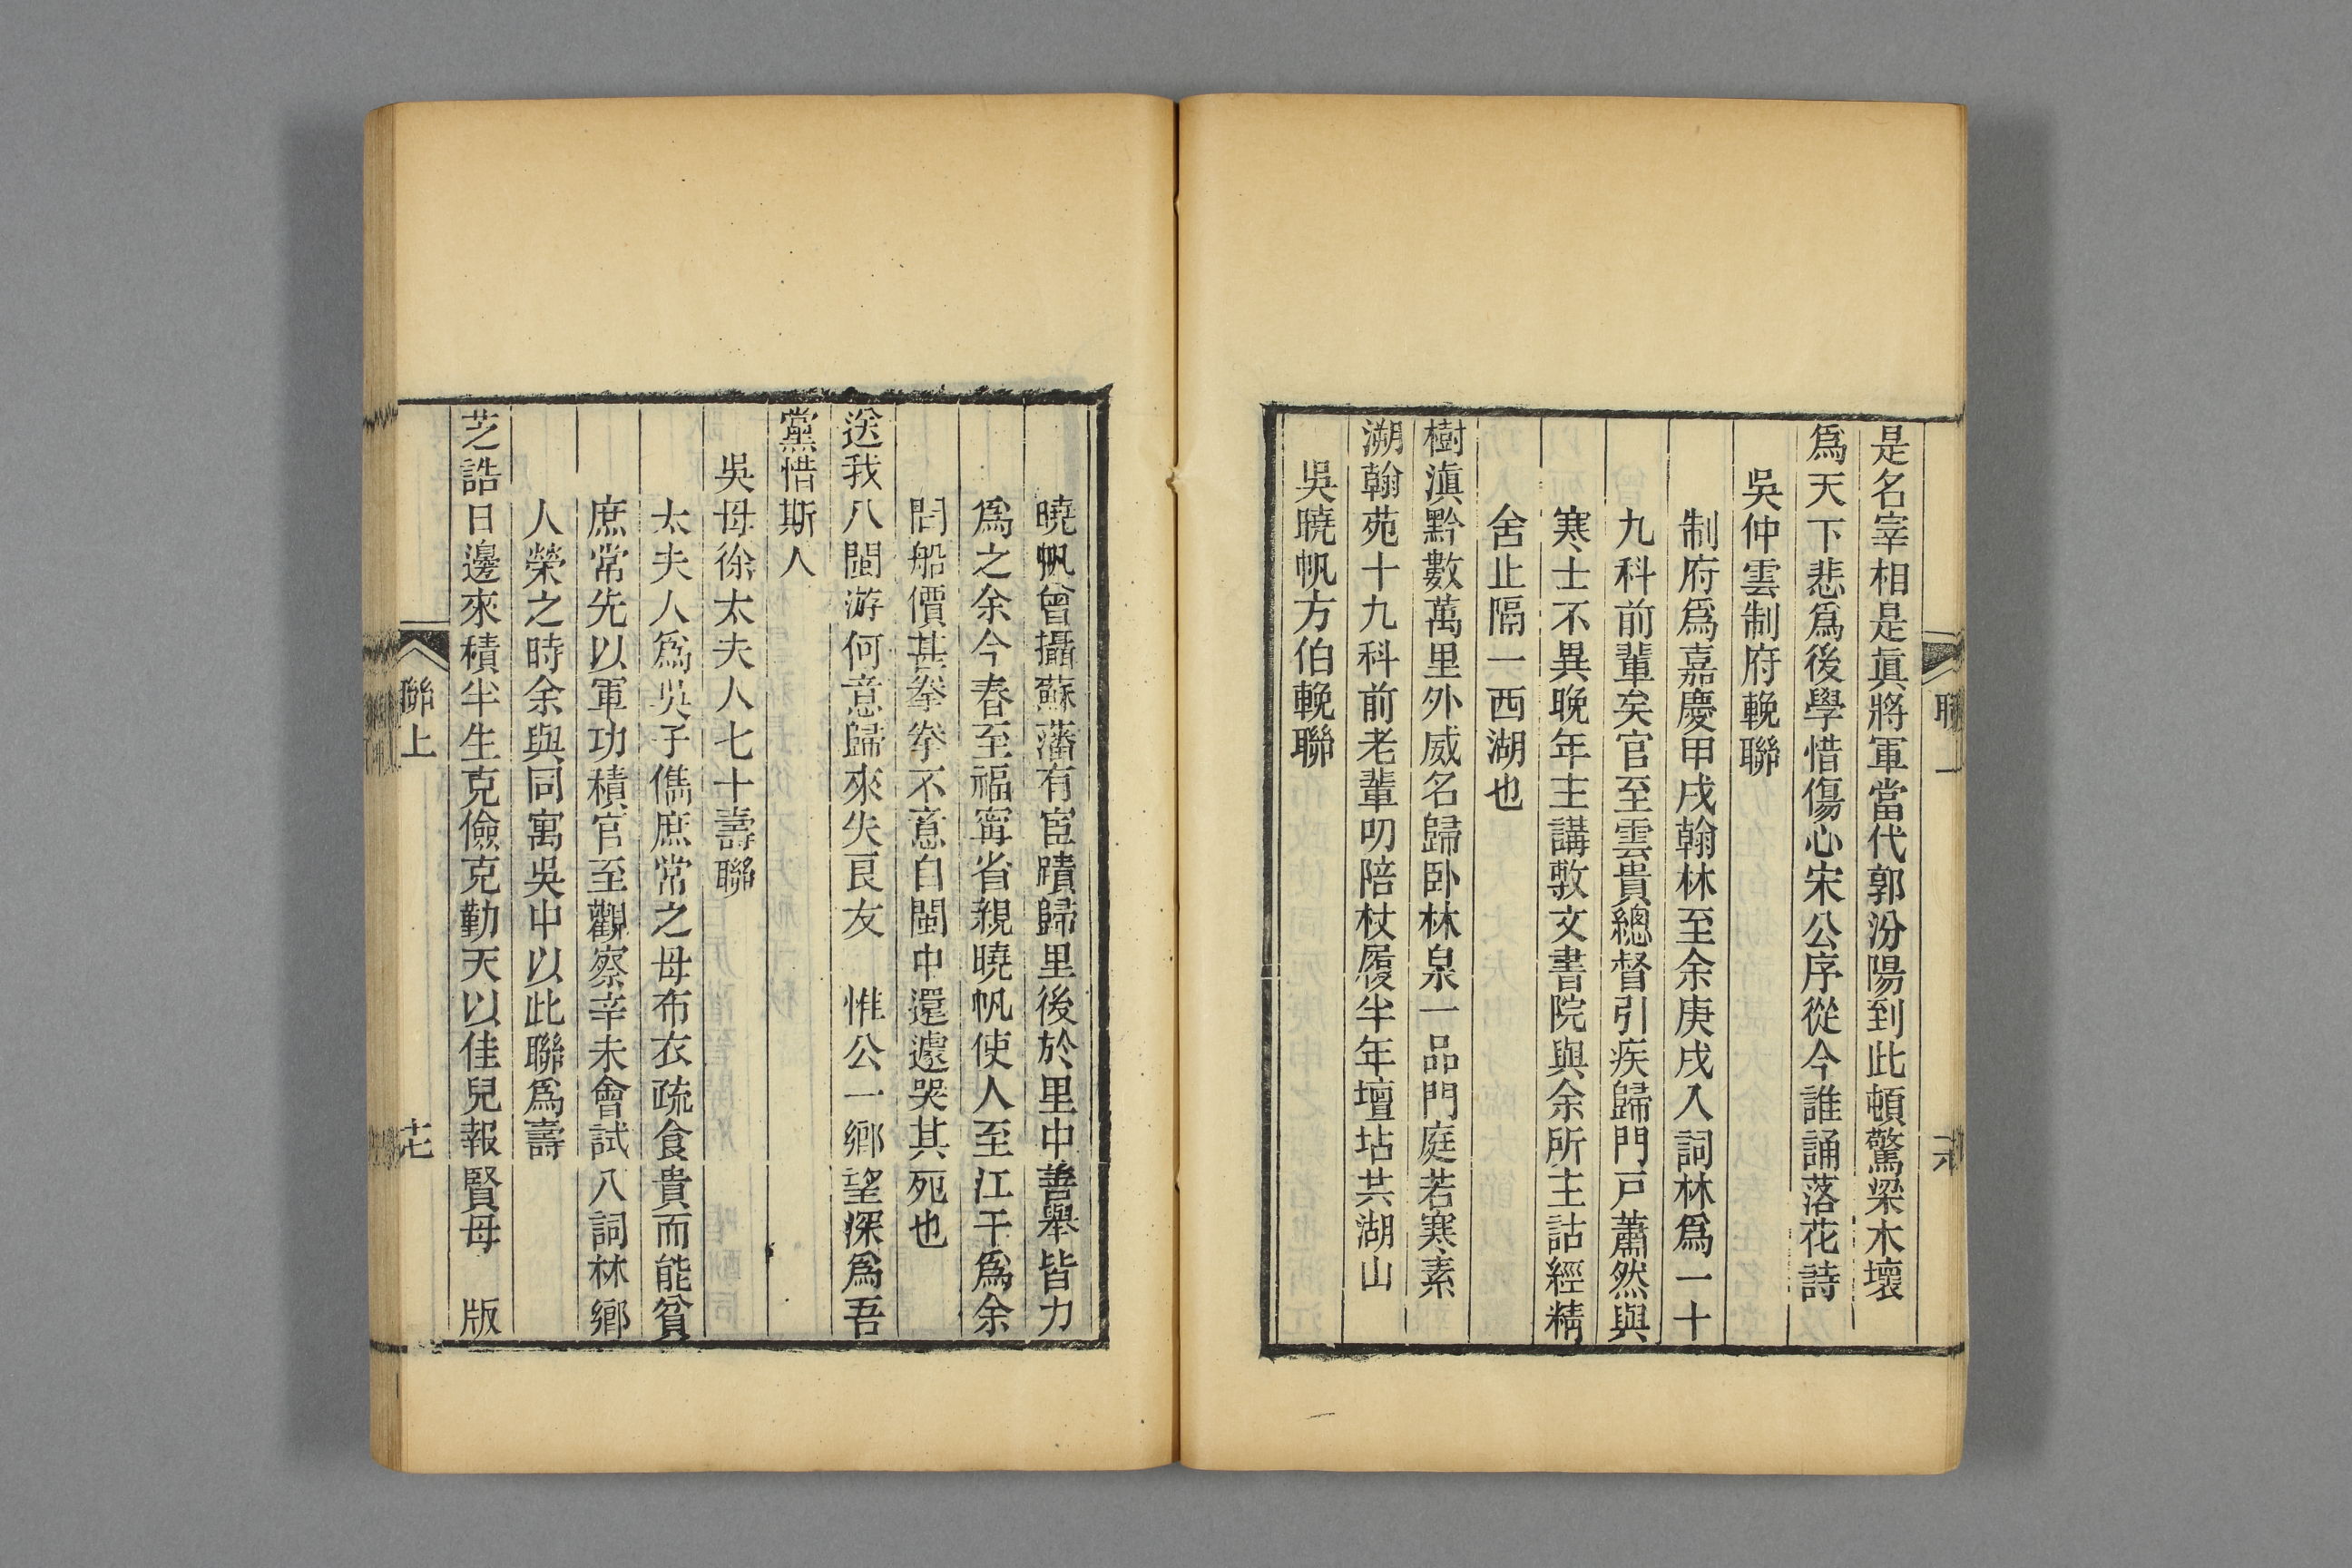 是名宰相是眞將軍當代郭汾陽到此頓驚梁木壞
爲天下悲爲後學惜傷心宋公序從今誰誦落花詩
吳仲雲制府輓聯
制府爲嘉慶甲戌翰林至余庚戌入詞林爲一十
九科前輩矣官至雲貴總督引疾歸門戸蕭然與
寒士不異晚年主講敷文書院與余所主詁經精
舍止隔一西湖也
樹滇黔數萬里外威名歸卧林泉一品門庭若寒素
溯翰苑十九科前老輩叨陪杖履半年壇坫共湖山
吳曉帆方伯輓聯
曉帆曾攝蘇藩有宦蹟歸里後於里中善舉皆力
爲之余今春至福甯省親曉帆使人至江干爲余
問船價甚拳拳不意自閩中還遽哭其死也
送我八閩游何意歸來失良友　惟公一鄉望深爲吾
黨惜斯人
吳母徐太夫人七十壽聯
太夫人爲吳子儁庶常之母布衣疏食貴而能貧
庶常先以軍功積官至觀察辛未會試入詞林鄉
人榮之時余與同寓吳中以此聯爲壽
芝誥日邊來積半生克儉克勤天以佳兒報賢母　版
聯上
十七